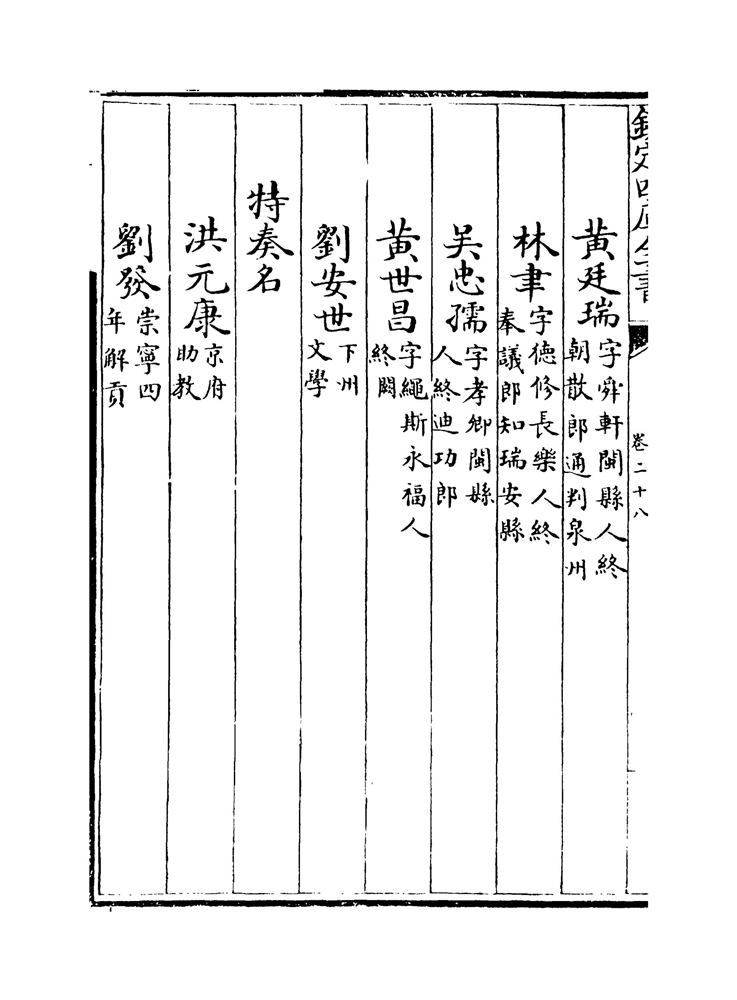 欽定四庫全書
卷二十八
黃廷瑞字舜軒閩縣人終朝散郎通判泉州
林聿字德修長樂人終奉議郎知瑞安縣
吴忠孺字孝卿閩縣人終迪功郎
黃世昌字繩斯永福人終闕
劉安世下州文學
特奏名
洪元康京府助教
劉發崇寧四年解貢